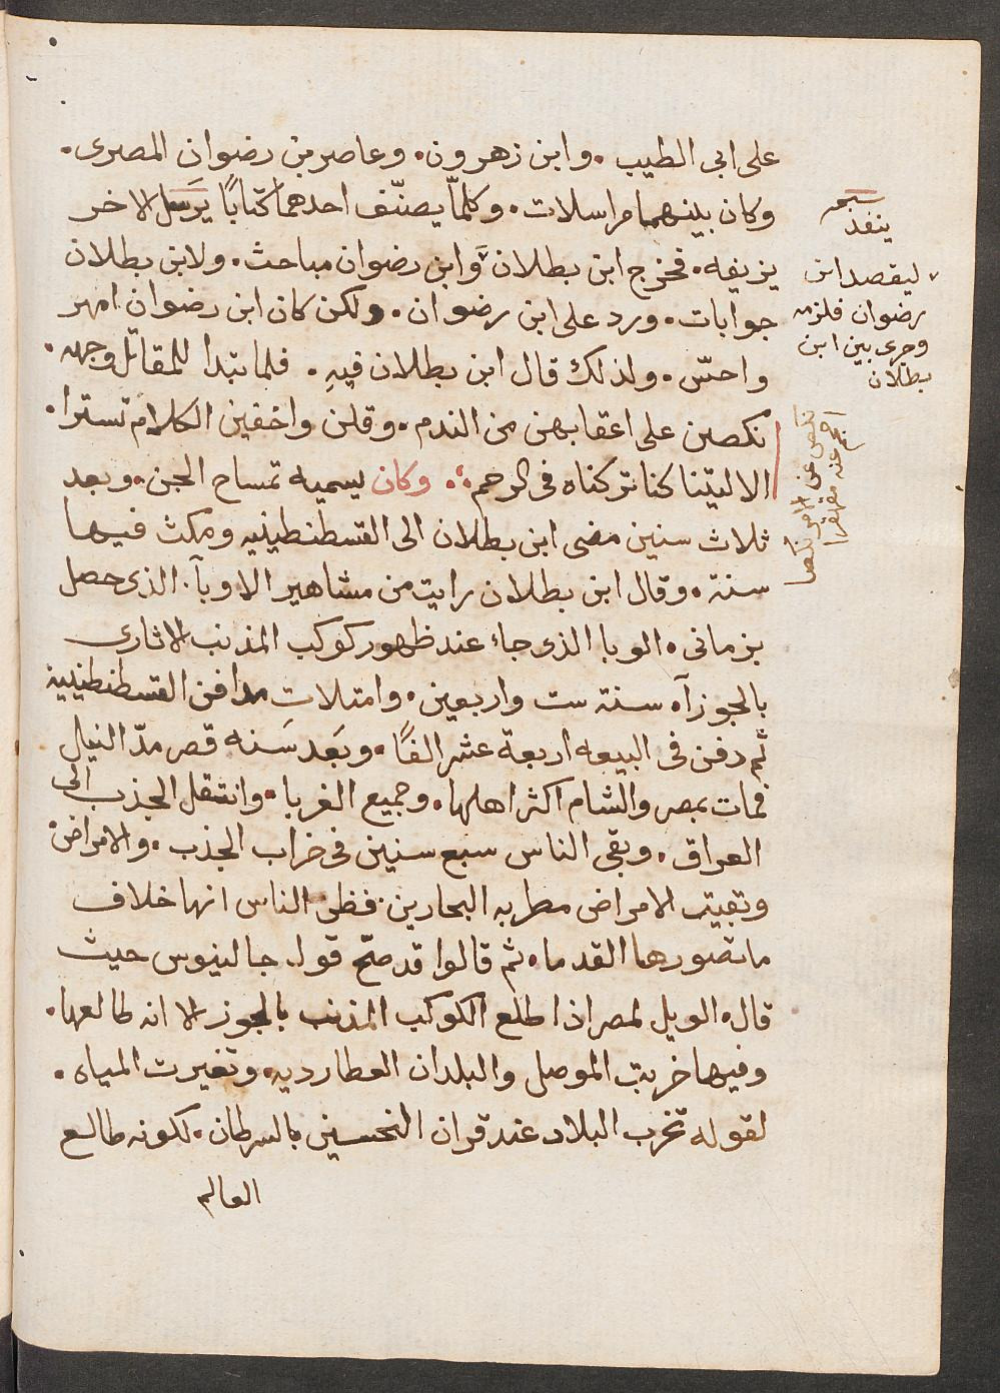 على ابى الطيب • وابن زهرون • وعاصر بن رضوان المصرى •
وكان بينهما مراسلات • وكلمّا يصنّف احدهما كتابًا يرسل الاخر
يزيفه • فخرج ابن بطلان وابن رضوان مباحث • ولابن بطلان
جوابات • ورد على ابن رضوان • ولكن كان ابن رضوان امهر
واحسّ • ولذلك قال ابن بطلان فيهِ • فلما تبدا للمقاتل وجهه •
نكصن على اعقابهن من الندم • وقلن واخفين الكلام تسترا •
الا ليتنا كنا تركناه فى الرحم • وكان يسميه تمساح الجن • وبعد
ثلاث سنين مضى ابن بطلان الى القسطنطينيه ومكث فيها
سنة • وقال ابن بطلان رايت من مشاهير الاوبآ • الذى حصل
بزمانى • الوبا الذى جاء عند ظهور كوكب المذنب الاثارى
بالجوزآه سنة ست واربعين • وامتلات مدافن القسطنطينية
ثم دفن فى البيعه اربعة عشر الفًا • وبَعد سَنه قصر مدّ النيل
فمات بمصر والشام اكثر اهلها • وجميع الغربا • وانتقل الجذب الى
العراق • وبقى الناس سبع سنين فى خراب الجذب • والامراض
وتعيبت الامراض مطربه البحارين • فظن الناس انها خلاف
ما تصورها القدماء • ثم قالوا قد صحّ قول جالينوس حيث
قال • الويل لمصر اذا طلع الكوكب المذنب بالجوز لانه طالعها •
وفيها خربت الموصل والبلدان العطارديه • وتغيرت المياه •
لقوله تخرب البلاد عند قران النحسين بالسرطان • لكونه طالع
العالم
ينفد
ليقصد ابن
رضوان فلزمه
وجرى بين ابن
بطلان
نكص عن الامر نكصا